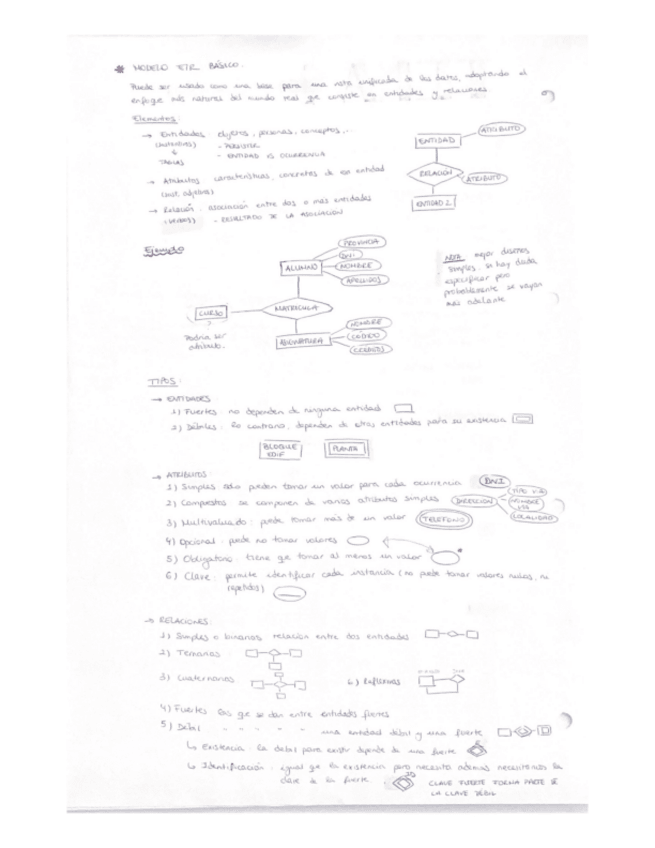 * MODELO E/R BÁSICO.
Puede ser usado como una base para una vista unificada de los datos, adoptando el
enfoque más natural del mundo real que consiste en entidades y relaciones
Elementos:
→ Entidades objetos, personas, conceptos,...
(sustantivos) - PERSISTIR
↓ - ENTIDAD VS OCURRENCIA
TABLAS
→ Atributos características, concretas de una entidad
(sust, adjetivos)
→ Relación: asociación entre dos o más entidades
(verbos) - RESULTADO DE LA ASOCIACIÓN
ATRIBUTO
ENTIDAD
RELACIÓN
ATRIBUTO
ENTIDAD 2
Ejemplo
PROVINCIA
DNI
ALUMNO
NOMBRE
APELLIDOS
CURSO
MATRICULA
Podría ser
atributo.
ASIGNATURA
NOMBRE
CÓDIGO
CRÉDITOS
NOTA mejor diseños
simples, si hay duda
especificar pero
probablemente se vayan
más adelante
TIPOS:
→ ENTIDADES
1) Fuertes no dependen de ninguna entidad
2) Débiles: lo contrario, dependen de otras entidades para su existencia
BLOQUE
EDIF
PLANTA
→ ATRIBUTOS:
1) Simples solo pueden tomar un valor para cada ocurrencia DNI
2) Compuestos se componen de varios atributos simples DIRECCIÓN
TIPO VÍA
NOMBRE
VÍA
LOCALIDAD
3) Multivaluado: puede tomar más de un valor TELEFONO
4) Opcional: puede no tomar valores
5) Obligatorio: tiene que tomar al menos un valor
6) Clave: permite identificar cada instancia (no puede tomar valores nulos, ni
repetidos)
→ RELACIONES:
1) Simples o binarias relación entre dos entidades
2) Ternarias
3) Cuaternarias
6) Reflexivas
4) Fuertes las que se dan entre entidades fuertes
5) Débil " " " " una entidad débil y una fuerte
↳ Existencia: la débil para existir depende de una fuerte E
↳ Identificación: igual que la existencia pero necesita además necesitamos la
clave de la fuerte. ID CLAVE FUERTE FORMA PARTE DE
LA CLAVE DÉBIL